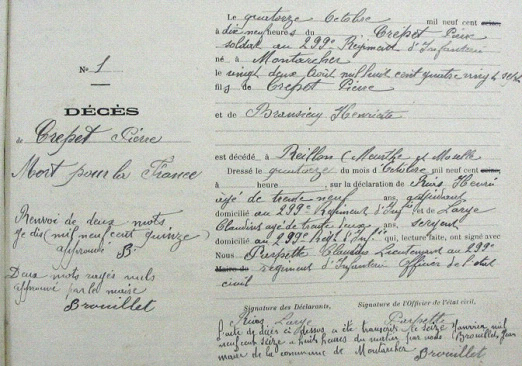 N° 1
DÉCÈS
de Crepet Pierre
Mort pour la France
Renvoi de deux mots
je dis (mil neuf cent quinze)
approuvé B.
Deux mots rayés nuls
approuvé par le maire
Brouillet
Le quatorze Octobre mil neuf cent seize,
à dix neuf heures du Crepet Pierre
soldat au 299e Régiment d'Infanterie
né à Montarcher
le vingt deux Août mil huit cent quatre vingt sept
fils de Crepet Pierre
et de Henriette
est décédé à Reillon (Meurthe et Moselle
Dressé le quatorze du mois d'Octobre mil neuf cent seize
à heure sur la déclaration de Henri
âgé de trente neuf ans, adjudant
domicilié au 299e Régiment d'Inf. et de Large
Claudius âgé de trente deux ans, sergent
domicilié au 299e Regt d'Inf. qui, lecture faite, ont signé avec
Nous Perpette Claudius Lieutenant au 299e
Maire de régiment d'Infanterie Officier de l'état
civil
Signature des Déclarants, Signature de l'Officier de l'état civil,
Large Perpette
L'acte de décès ci dessus a été transcrit le seize Janvier mil
neuf cent seize à huit heures du matin par nous Brouillet Jean
maire de la commune de Montarcher Brouillet